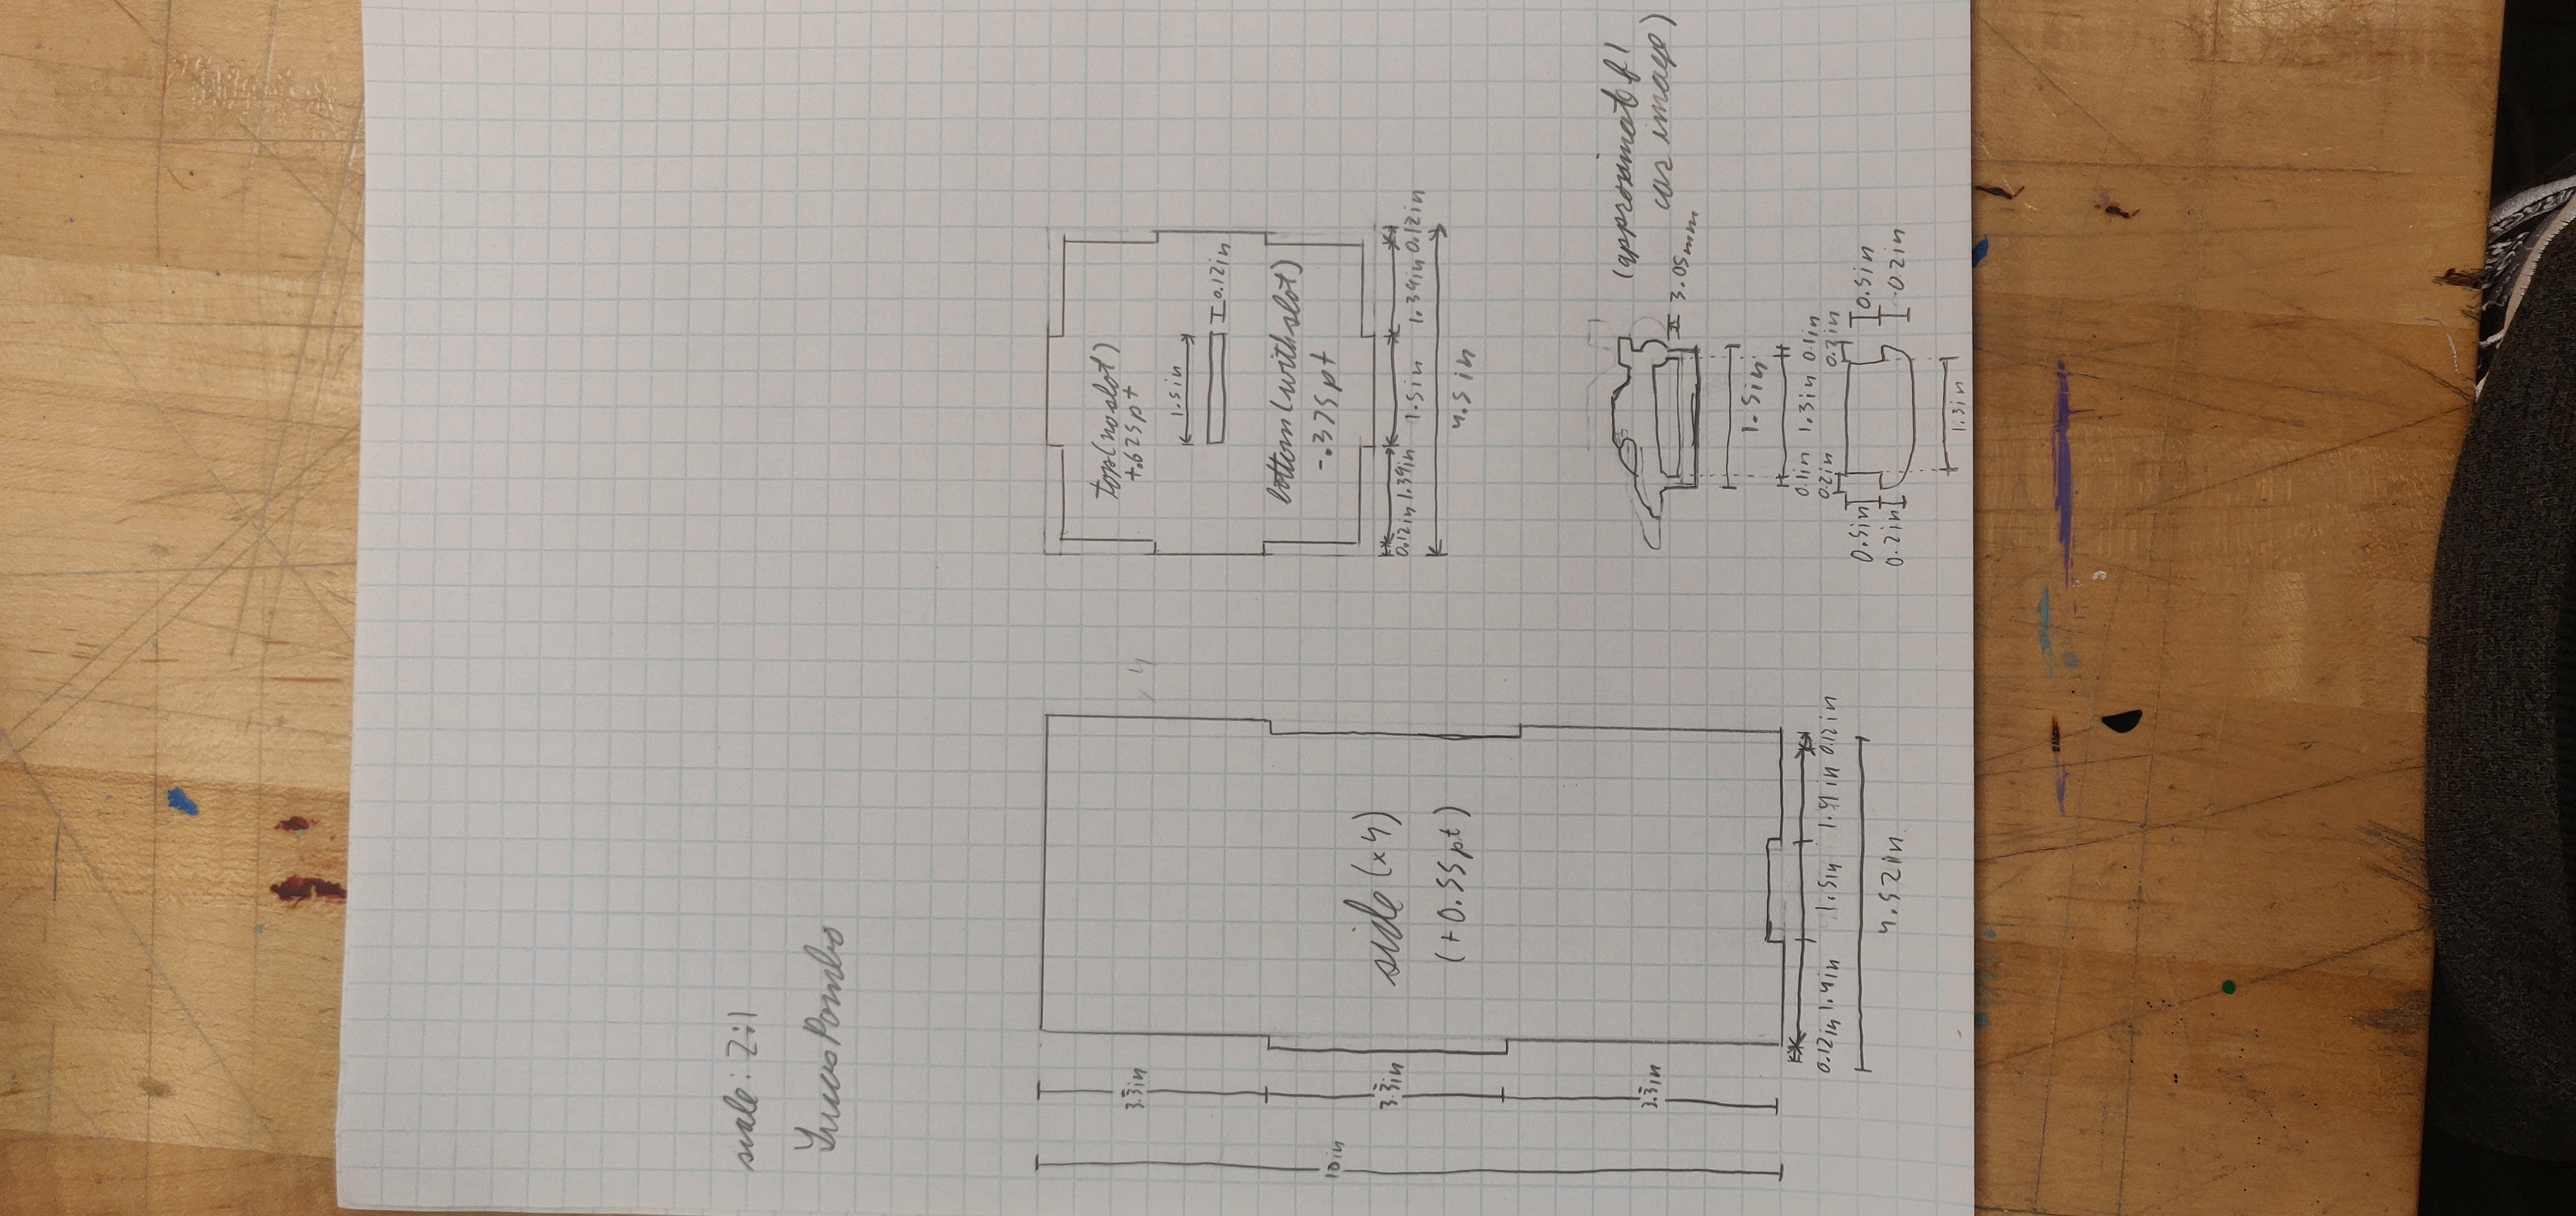 scale: 2:1
Lucas Pombo
3.3̅in
10in
3.3̅in
3.3̅in
side (x4)
(+0.55pt)
x4
0.12in 1.4in 1.5in 1.51in 0.12in
4.52in
top(no slot)
+.625pt
1.5in
0.12in
bottom(with slot)
-.375pt
0.12in 1.39in 1.5in 1.39in 0.12in
4.5in
(approximate f1
car image)
3.05mm
1.5in
0.1in 1.3in 0.1in
0.2in 0.2in
0.5in 0.5in
0.2in 0.2in
1.3in